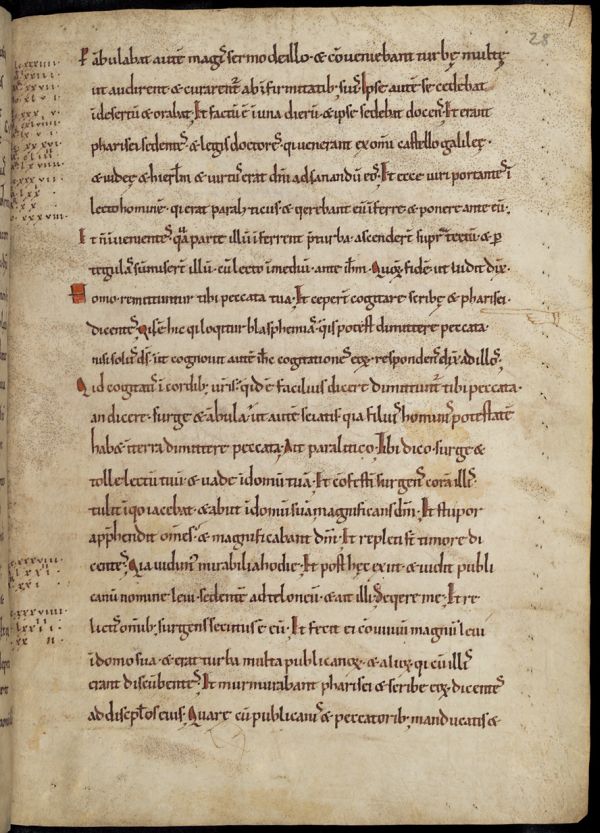 28
P ābulabat autē magꝭ sermo de illo · & cōveniebant turbę multę ·
ut audirent & curarentᷣ ab īfirmitatib; suis̄ · Ipse autē secedebat
ī desertū & orabat · Et factū ē ī una dierū & ipse sedebat docens̄ · Et erant
pharisei sedentes̄ & legis doctores̄ · qui venerant ex omī castello galileę ·
& iudeę & hierlm̄ & virtus̄ erat dn̄i ad sanandū eos̄ · Et ecce viri portantes̄ ī
lecto hominē · qui erat paralyticus · & qerebant eū īferre & ponere ante eū ·
Et n̄ īvenientes̄ · qa parte illū īferrent p̄ turba · ascenderunt̄ supra tectū & ꝑ
tegulas̄ sūmisert̄ illū · cū lecto ī mediū · ante ih̄m · Quoꝝ fidē · ut vidit dix̄ ·
Homo · remittuntur tibi peccata tua · Et ceperunt̄ cogitare scribę & pharisei ·
dicentes̄ · Qis ē hic qi loqitur blasphemias̄ · qis potest dimittere peccata ·
nisi solus̄ ds̄ · ut cognovit autē ih̄c cogitationes̄ eoꝝ · respondens̄ dix̄ ad illos̄ ·
Qid cogitatis̄ ī cordib; vr̄is · qid ē facilius dicere dimittuntᷣ tibi peccata ·
an dicere · surge & ābula · ut autē sciatis̄ · qia filius̄ hominis̄ potestatē
habet ī terra dimittere peccata · Ait paralitico · Tibi dico · surge &
tolle lectū tuū · & vade ī domū tuā · Et cōfestī surgens̄ corā illis̄ ·
tulit ī qo iacebat · & abiit ī domū suā magnificans dm̄ · Et stupor
app̄hendit om̄es · & magnificabant dm̄ · Et repleti st̄ timore di
centes̄ · Qia vidimus̄ mirabilia hodie · Et post hęc exiit · & vidit publi
canū nomine levi · sedentē ad teloneū · & ait illi · Seqere me · Et re
lictis̄ omīb; surgens secutus ē eū · Et fecit ei cōvivium magnū levi
ī domo sua · & erat turba multa publicanoꝝ · & alioꝝ · qi cū illis̄
erant discūbentes̄ · Et murmurabant pharisei & scribe eoꝝ · dicentes̄
ad discipl̄os eius · Quare cū publicanis̄ & peccatorib; manducatis &